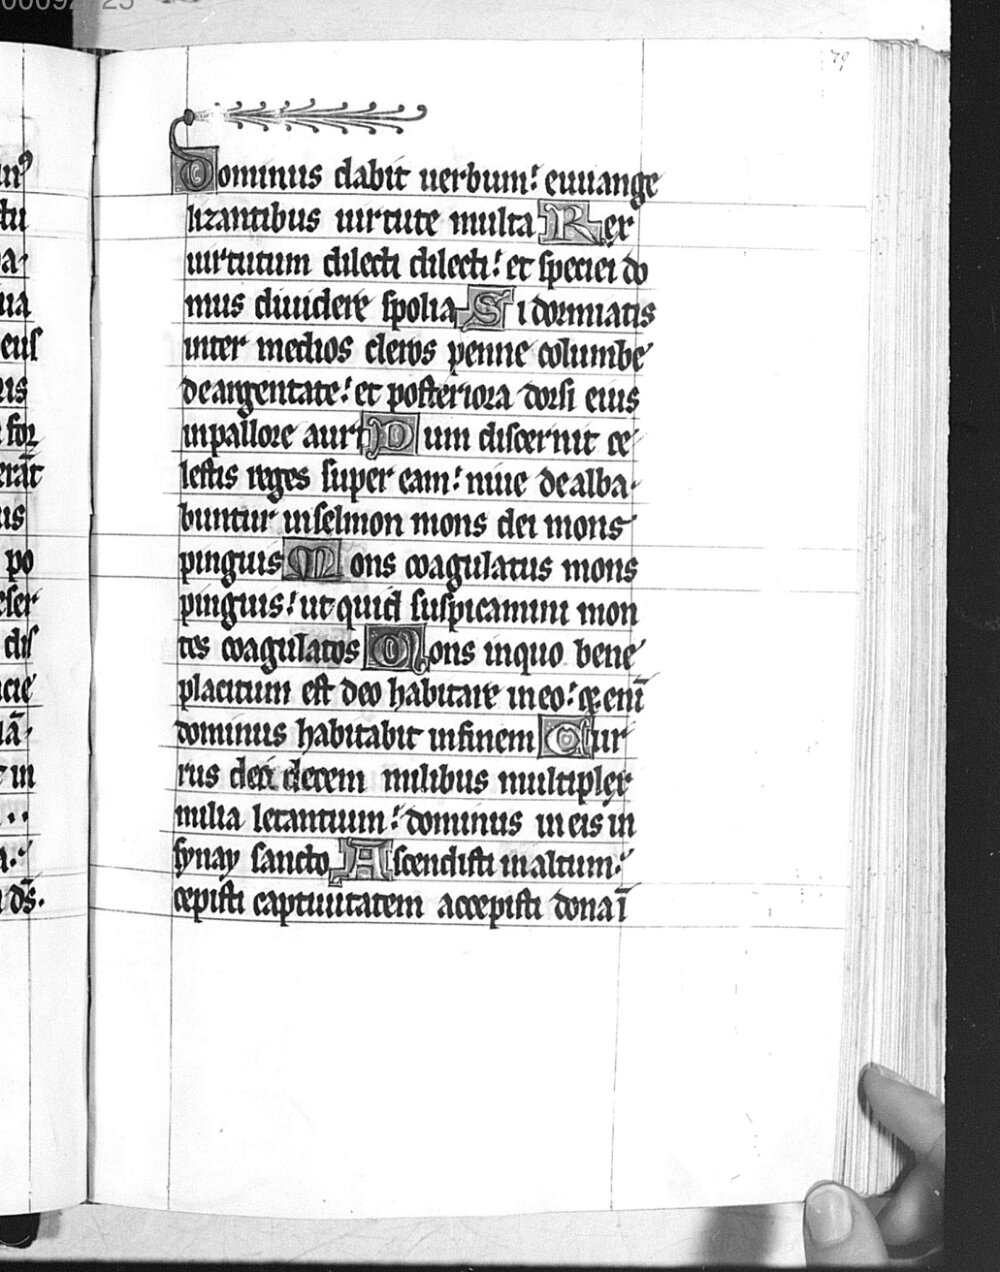 79
Dominus dabit uerbum: euuange
lizantibus uirtute multa Rex
uirtutum dilecti dilecti: et speciei do
mus diuidere spolia Si dormiatis
inter medios cleros penne columbe
deargentate: et posteriora dorsi eius
inpallore auri Dum discernit ce
lestis reges super eam: niue dealba
buntur inselmon mons dei mons
pinguis Mons coagulatus mons
pinguis: ut quid suspicamini mon
tes coagulatos Mons inquo bene
placitum est deo habitare ineo: enī
dominus habitabit infinem Cur
rus dei decem milibus multiplex
milia letantium: dominus ineis in
synay sancto Ascendisti inaltum:
cepisti captiuitatem accepisti dona ī